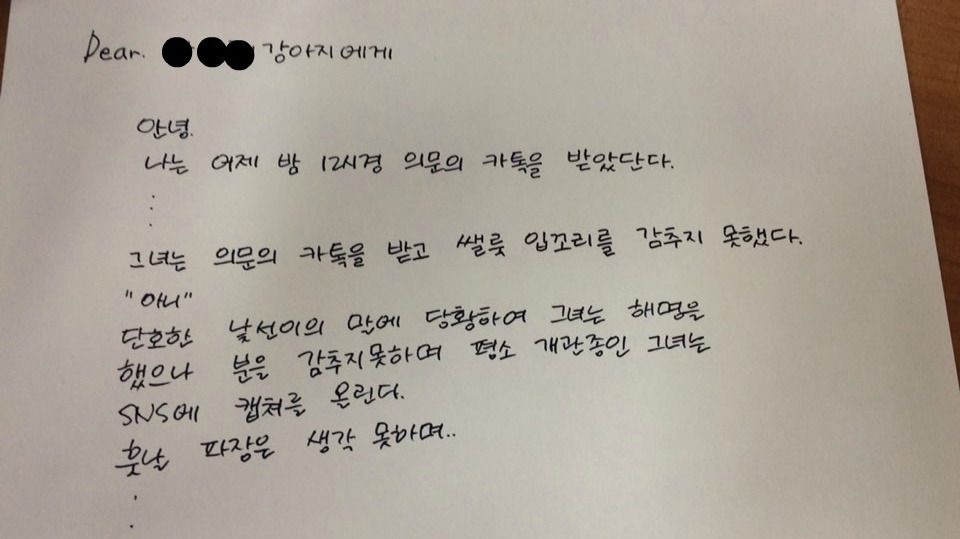 Dear. 강아지에게
안녕.
나는 어제 밤 12시경 의문의 카톡을 받았단다.
그녀는 의문의 카톡을 받고 쌜룩 입꼬리를 감추지 못했다.
"아니"
단호한 낯선이의 말에 당황하여 그녀는 해명을
했으나 분을 감추지못하며 평소 개관종인 그녀는
SNS에 캡쳐를 올린다.
훗날 파장은 생각 못하며..